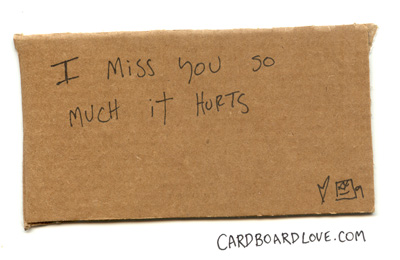 I MISS YOU SO
MUCH IT HURTS
CARDBOARDLOVE.COM